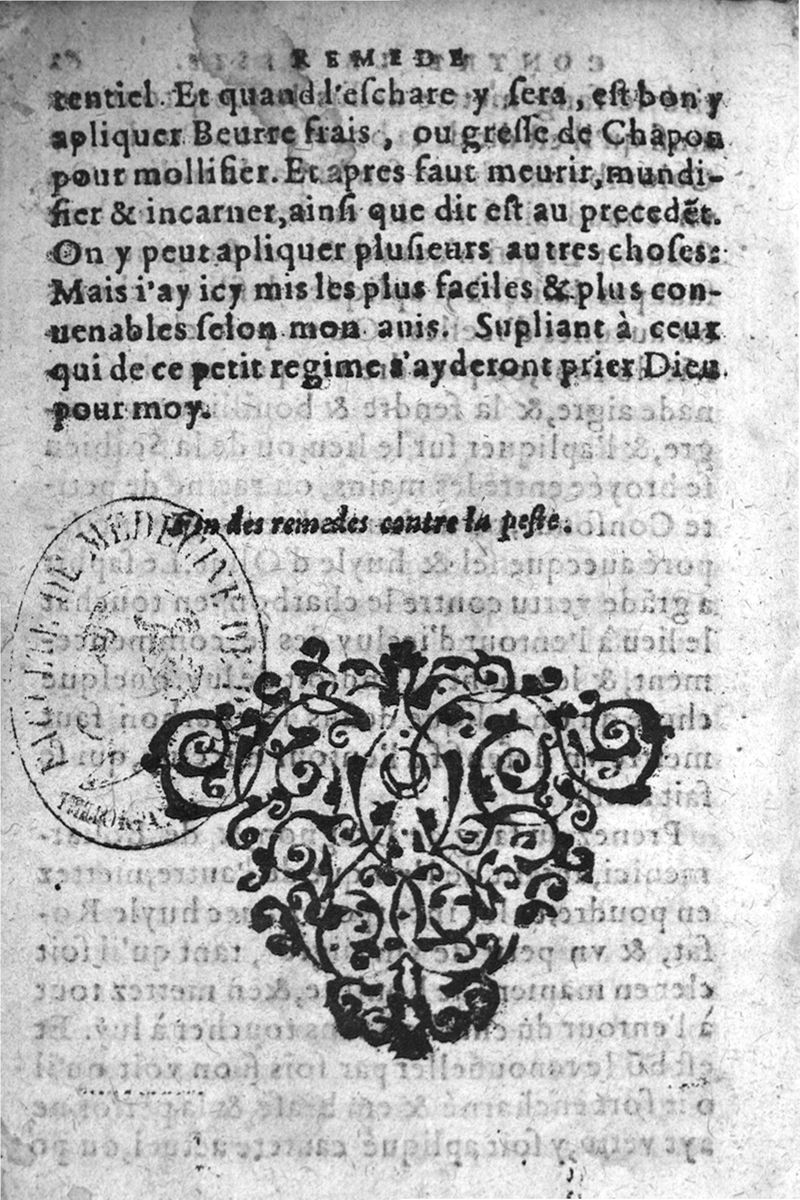 REMEDE
tentiel. Et quand l'eschare y sera, est bon y
apliquer Beurre frais, ou gresse de Chapon
pour mollifier. Et apres faut meurir, mundi-
fier & incarner, ainsi que dit est au precedẽt.
On y peut apliquer plusieurs autres choses:
Mais i'ay icy mis les plus faciles & plus con-
uenables selon mon auis. Supliant à ceux
qui de ce petit regime s'ayderont prier Dieu
pour moy.
Fin des remedes contre la peste.
DE MEDECINE DE